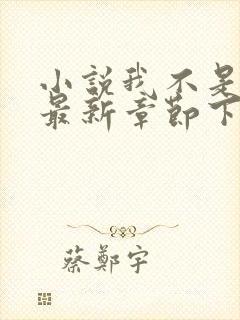 小說我不是
最新章節下
蔡鄭宇